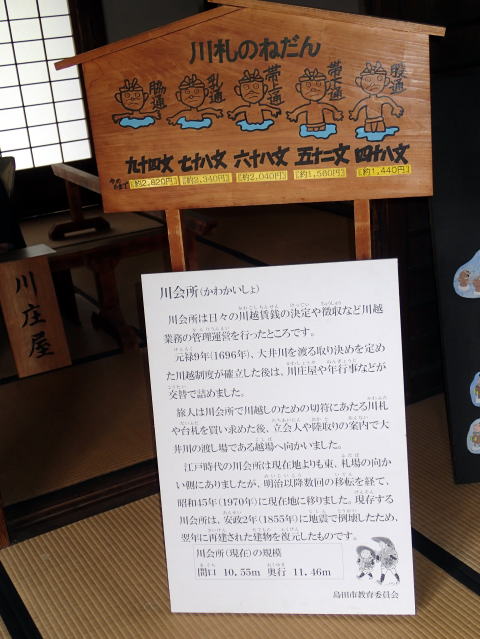 川札のねだん
脇通
乳通
帯上通
帯下通
股通
九十四文 七十八文 六十八文 五十二文 四十八文
[約2,820円] [約2,340円] [約2,040円] [約1,560円] [約1,440円]
川庄屋
川会所(かわかいしょ)
川会所は日々の川越賃銭の決定や徴収など川越
業務の管理運営を行ったところです。
元禄9年(1696年)、大井川を渡る取り決めを定め
た川越制度が確立した後は、川庄屋や年行事などが
交替で詰めました。
旅人は川会所で川越しのための切符にあたる川札
や台札を買い求めた後、立会人や陸取りの案内で大
井川の渡し場である越場へ向かいました。
江戸時代の川会所は現在地よりも東、札場の向か
い側にありましたが、明治以降数回の移転を経て、
昭和45年(1970年)に現在地に移りました。現存する
川会所は、安政2年(1855年)に地震で倒壊したため、
翌年に再建された建物を復元したものです。
川会所(現在)の規模
間口 10.55m 奥行 11.46m
島田市教育委員会